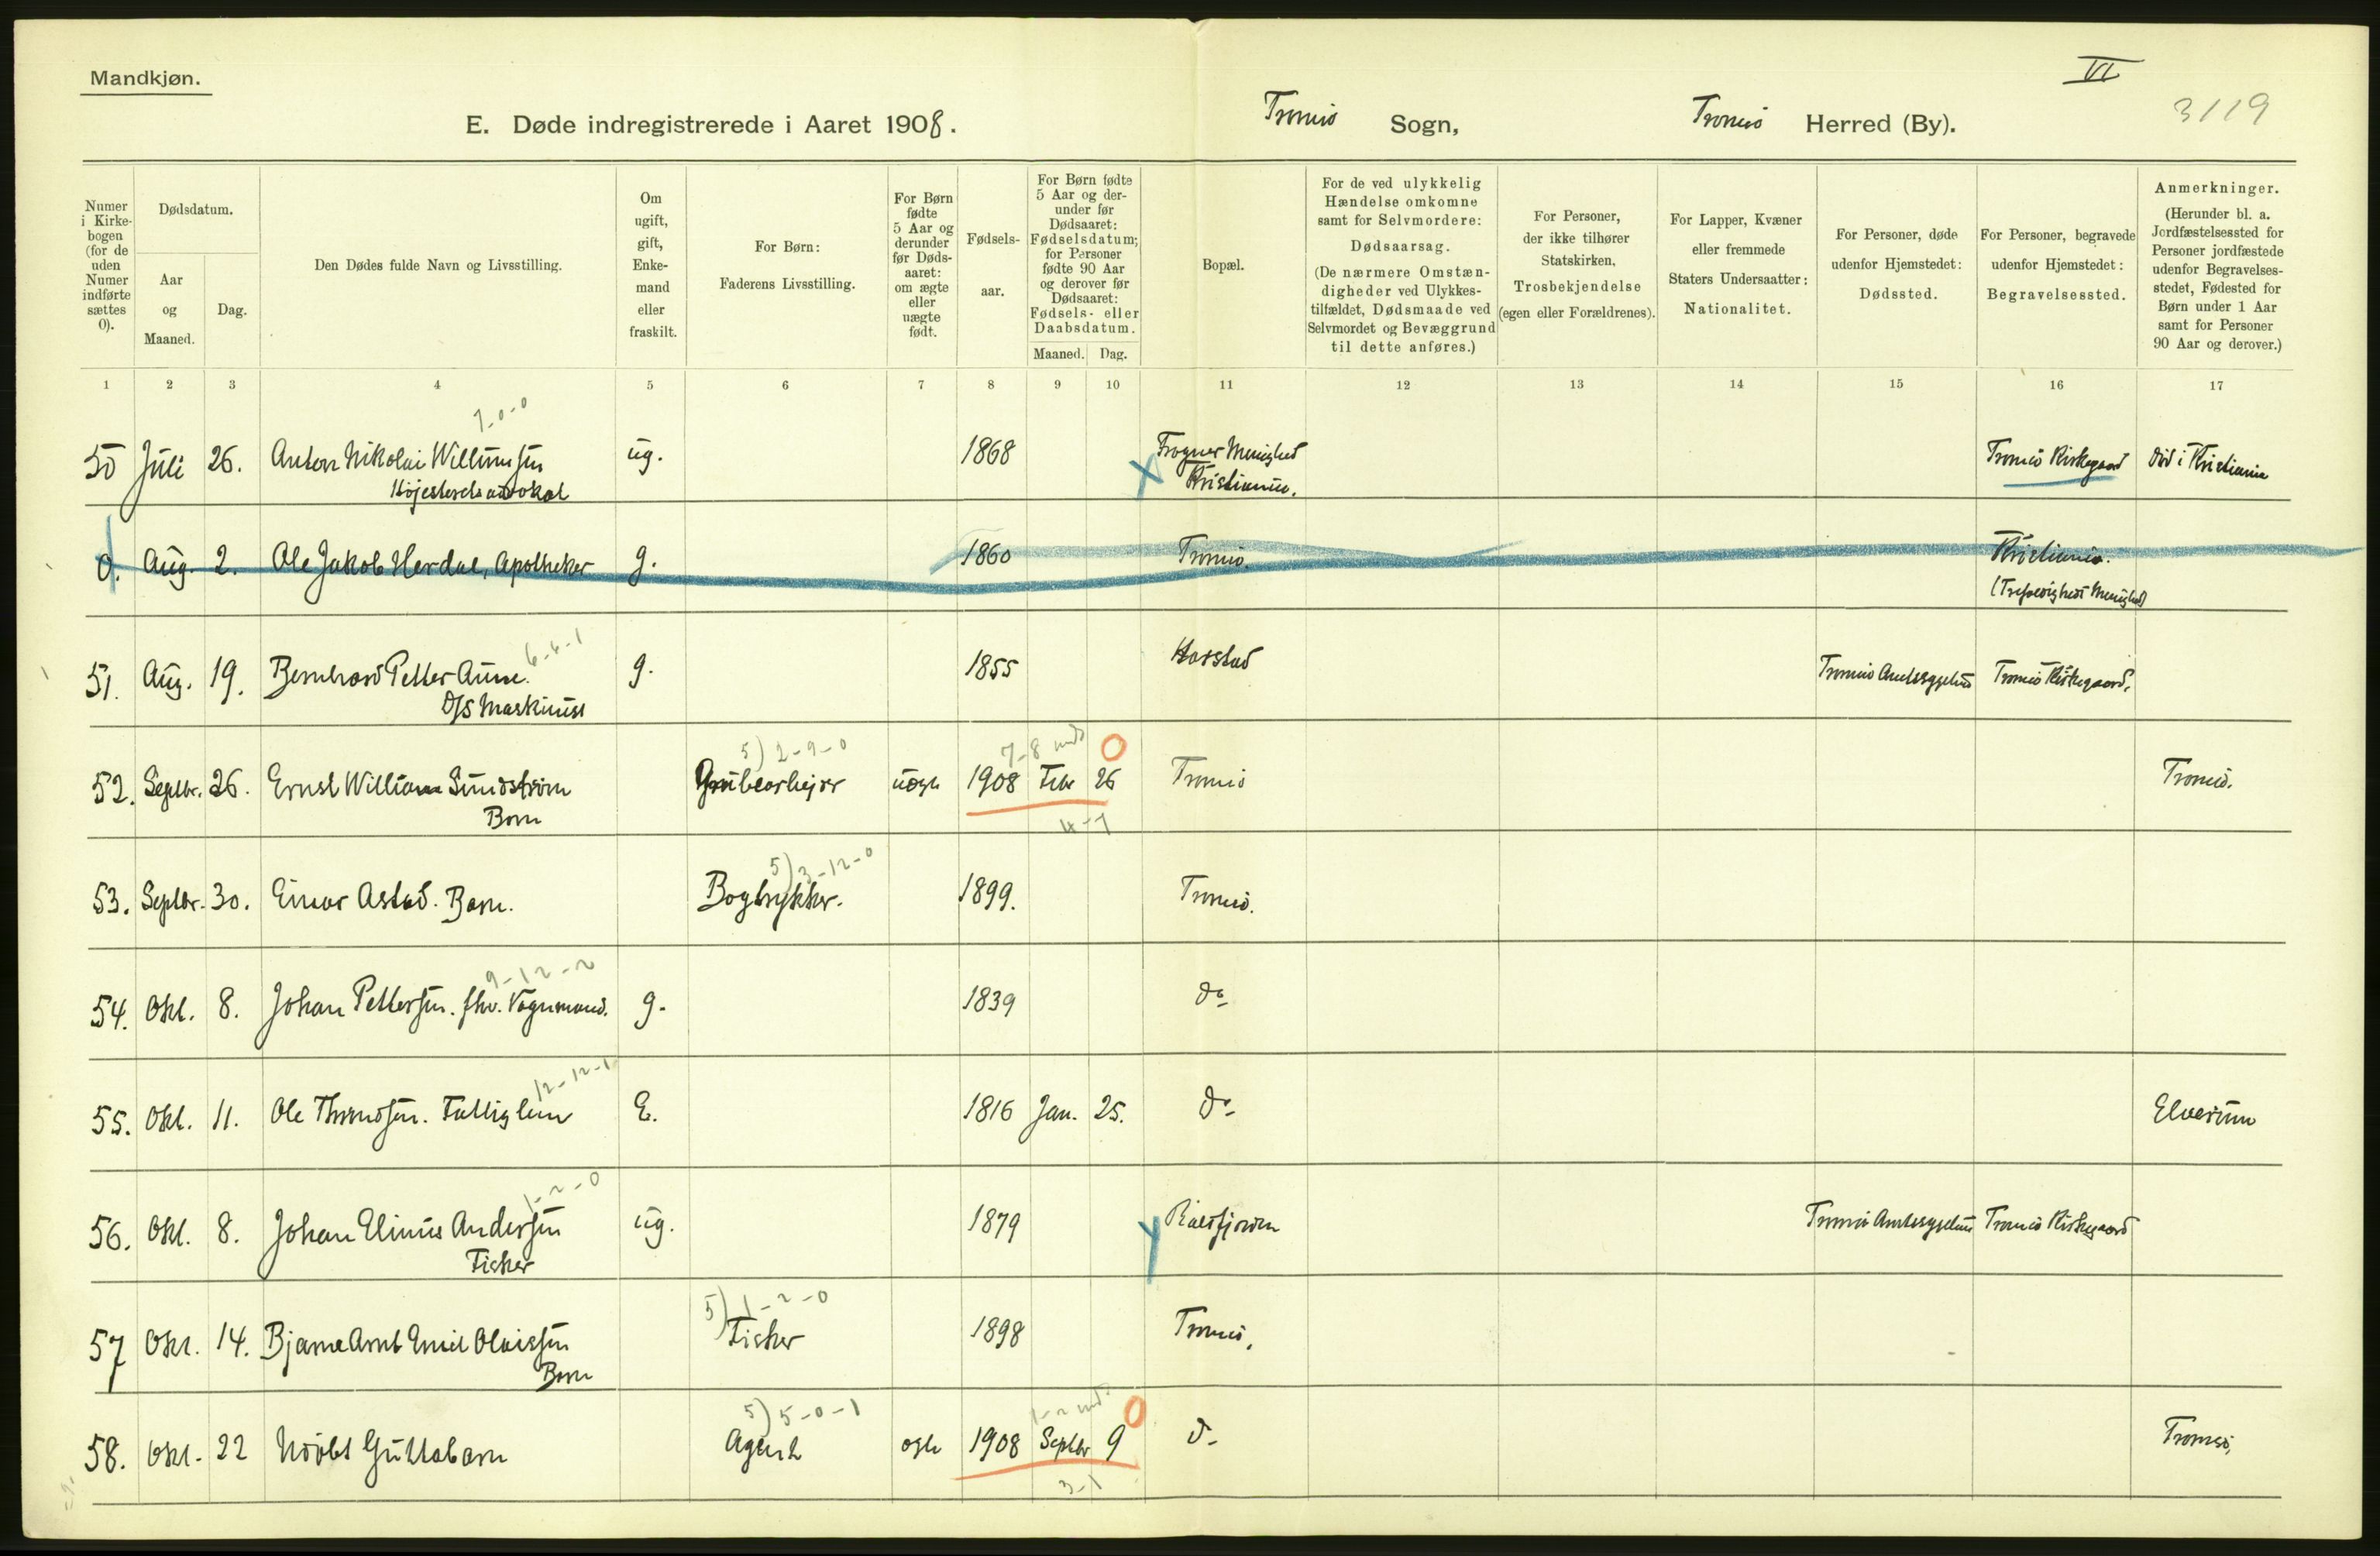 Mandkjøn.
VI
3119
E. Døde indregistrerede i Aaret 1908. Tromsø Sogn, Tromsø Herred (By).
Numer i Kirkebogen (for de uden Numer indførte sættes 0).
Dødsdatum.
Aar og Maaned.
Dag.
Den Dødes fulde Navn og Livsstilling.
Om ugift, gift, Enkemand eller fraskilt.
For Børn: Faderens Livsstilling.
For Børn fødte 5 Aar og derunder før Dødsaaret: om ægte eller uægte født.
Fødselsaar.
For Børn fødte 5 Aar og derunder før Dødsaaret: Fødselsdatum; for Personer fødte 90 Aar og derover før Dødsaaret: Fødsels- eller Daabsdatum.
Maaned. Dag.
Bopæl.
For de ved ulykkelig Hændelse omkomne samt for Selvmordere: Dødsaarsag. (De nærmere Omstændigheder ved Ulykkestilfældet, Dødsmaade ved Selvmordet og Bevæggrund til dette anføres.)
For Personer, der ikke tilhører Statskirken, Trosbekjendelse (egen eller Forældrenes).
For Lapper, Kvæner eller fremmede Staters Undersaatter: Nationalitet.
For Personer, døde udenfor Hjemstedet: Dødssted.
For Personer, begravede udenfor Hjemstedet: Begravelsessted.
Anmerkninger. (Herunder bl. a. Jordfæstelsessted for Personer jordfæstede udenfor Begravelsesstedet, Fødested for Børn under 1 Aar samt for Personer 90 Aar og derover.)
1 2 3 4 5 6 7 8 9 10 11 12 13 14 15 16 17
7-0-0
50 Juli 26. Anton Nikolai Willumsen ug. 1868 Frogner Menighed Tromsø Kirkegaard død i Kristiania
Højesteretsadvokat Kristiania.
0. Aug. 2. Ole Jakob Herdal, Apotheker g. 1860 Tromsø. Kristiania.
(Trefoldigheds Menighed)
6-6-1
51. Aug. 19. Bernhard Petter Aune. g. 1855 Harstad Tromsø Amtssygehus Tromsø Kirkegaard.
D/S Maskinist
5) 2-9-0 7-8 md 0
52. Septbr. 26. Ernst William Sundstrøm Grubearbejder uægte 1908 Febr 26 Tromsø Tromsø.
Barn 4-7
5) 3-12-0
53. Septbr. 30. Einar Astad. Barn. Bogtrykker. 1899. Tromsø.
9-12-2
54. Okt. 8. Johan Pettersen. fhv. Vognmand. g. 1839 do
12-12-1
55. Okt. 11. Ole Thomassen. Fattiglem E. 1816 Jan. 25. do Elverum
1-2-0
56. Okt. 8. Johan Elinus Andersen ug. 1879 Balsfjorden Tromsø Amtssygehus Tromsø Kirkegaard
Fisker
5) 1-2-0
57 Okt. 14. Bjarne Arnt Emil Olaissen Fisker 1898 Tromsø.
Barn
5) 5-0-1 1-2 md 0
58. Okt. 22 Udøbt Guttebarn Agent ægte 1908 Septbr 9 do Tromsø.
3-1